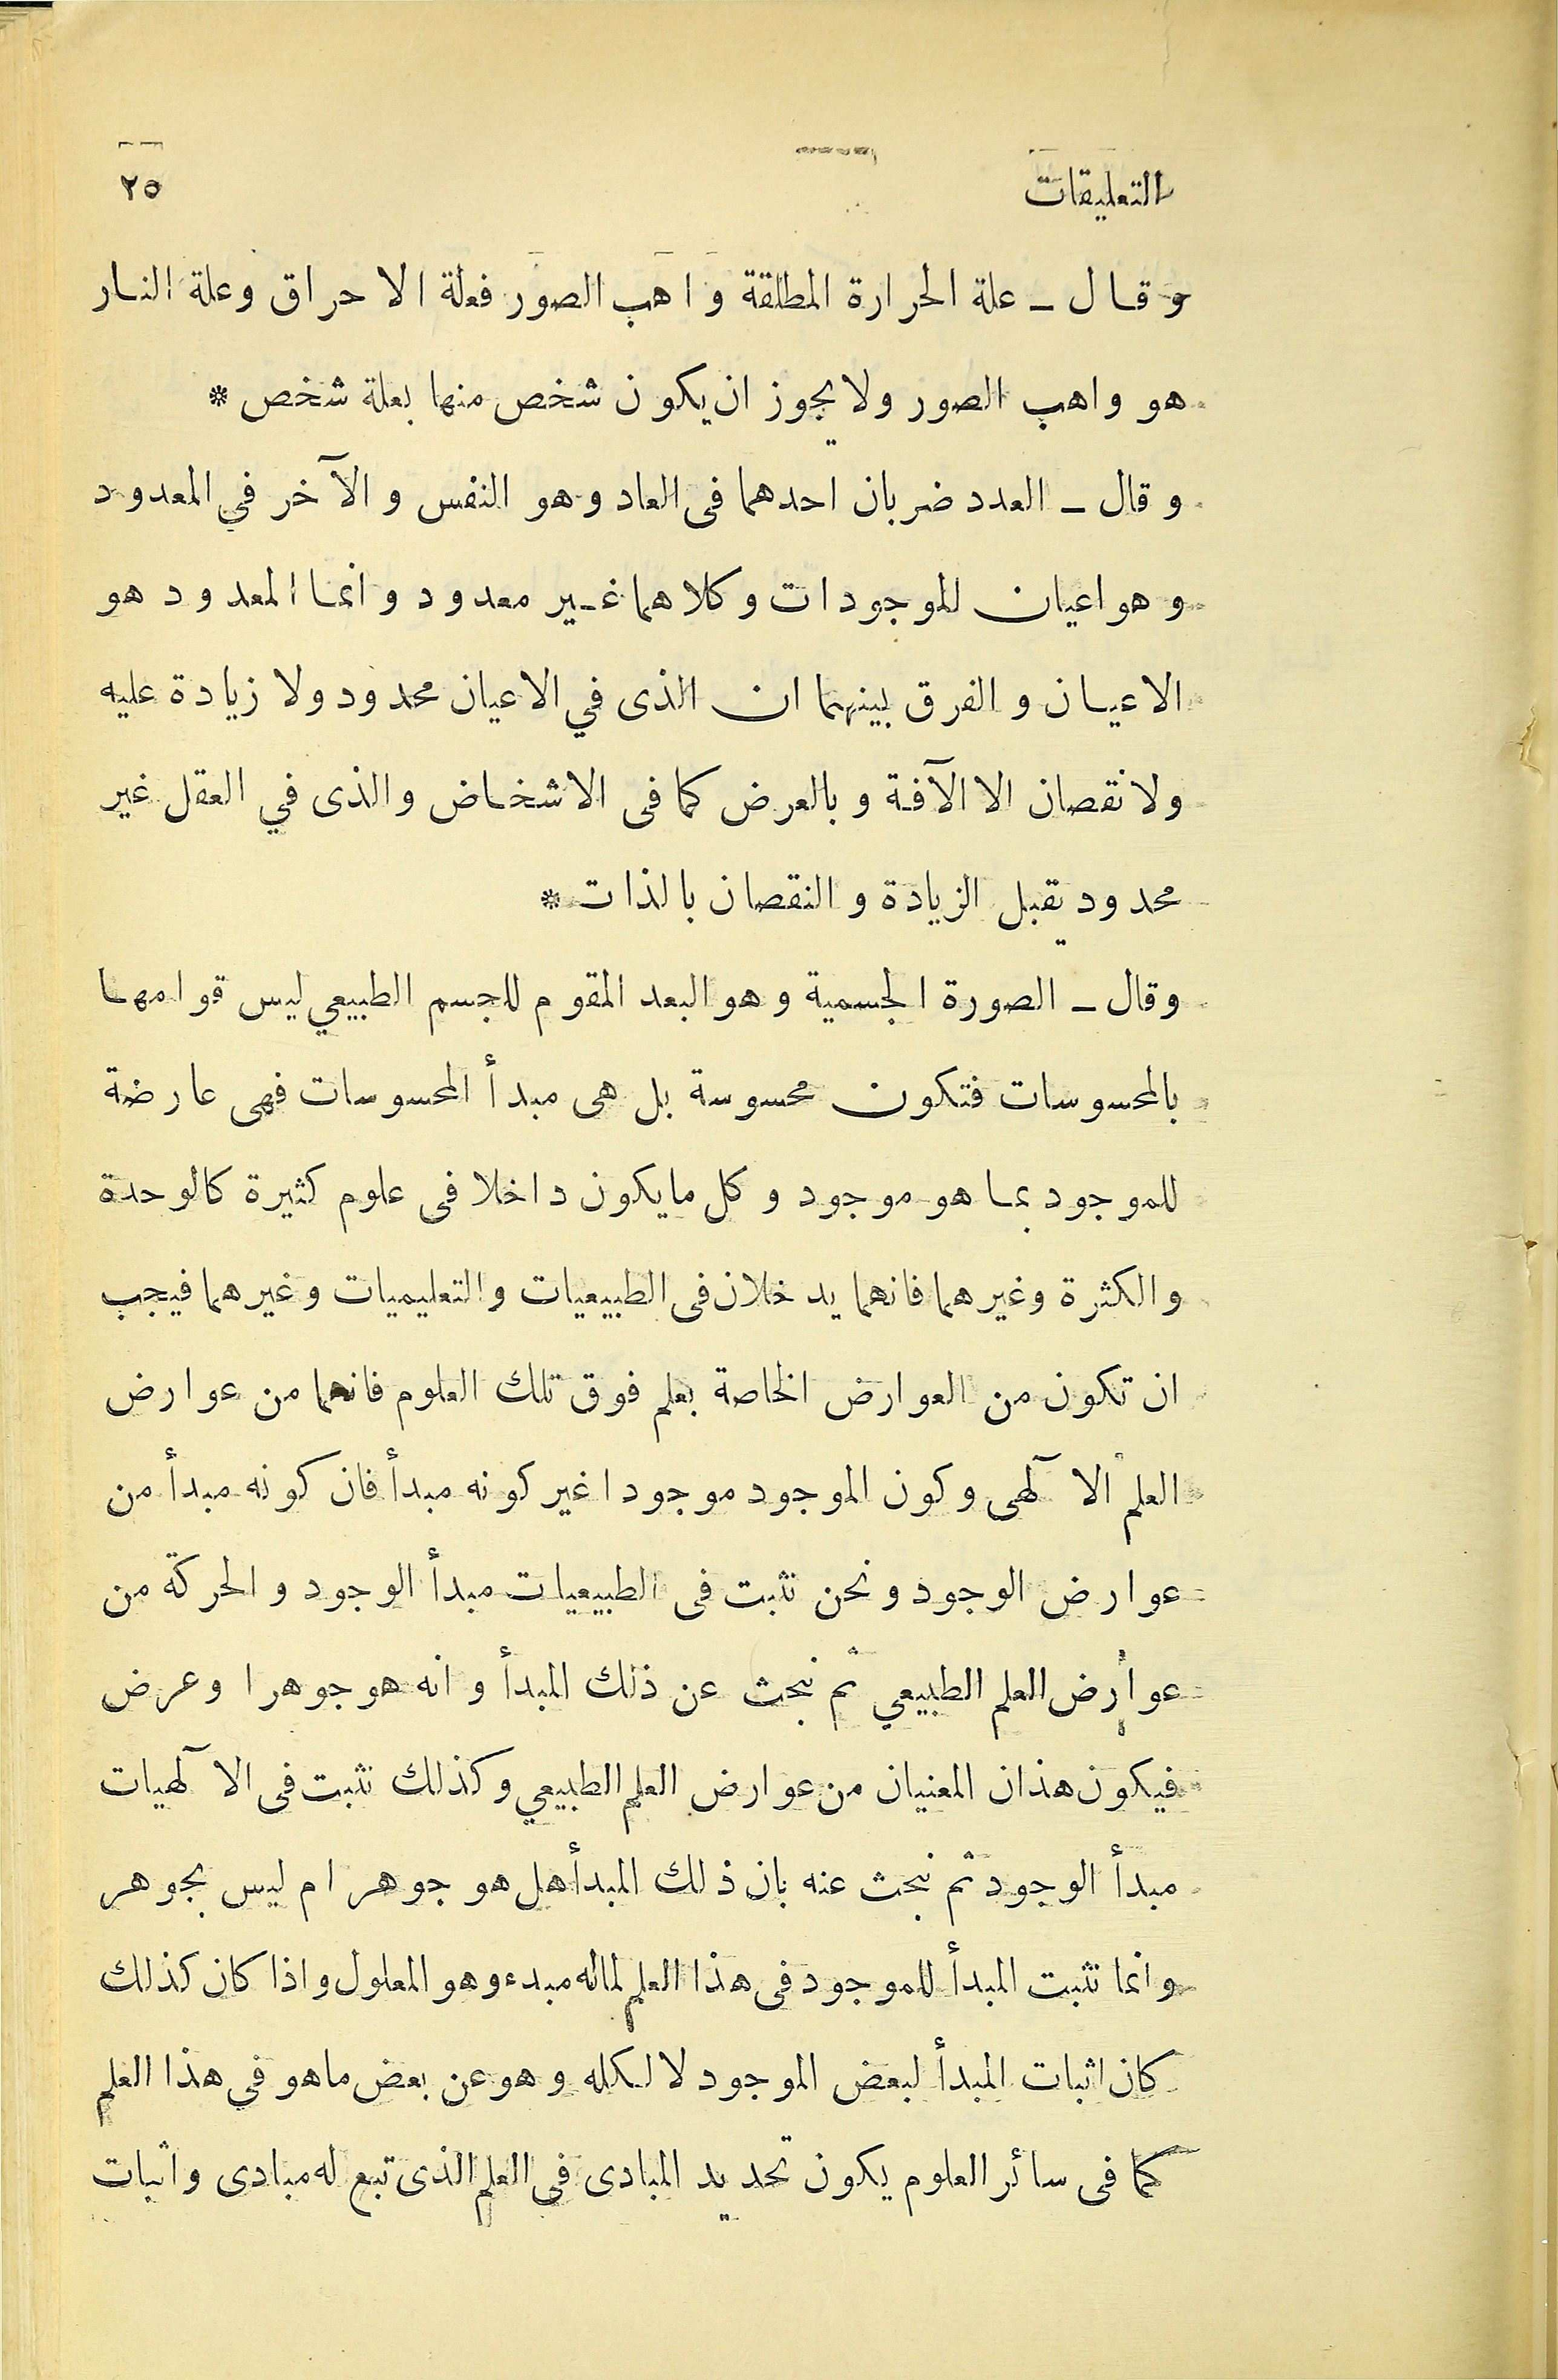 التعليقات ٢٥
وقال ـ علة الحرارة المطلقة واهب الصور فعلة الاحراق وعلة النار
هو واهب الصور ولا يجوز ان يكون شخص منها بعلة شخص *
وقال ـ العدد ضربان احدهما فى العاد وهو النفس والآخر في المعدود
وهو اعيان للموجودات وكلاهما غير معدود وانما المعدود هو
الاعيان والفرق بينهما ان الذى في الاعيان محدود ولا زيادة عليه
ولا نقصان الا الآفة وبالعرض كما فى الاشخاض والذى في العقل غير
محدود يقبل الزيادة والنقصان بالذات *
وقال ـ الصورة الجسمية وهو البعد المقوم للجسم الطبيعي ليس قوامها
بالمحسوسات فتكون محسوسة بل هى مبدأ المحسوسات فهى عارضة
للموجود بما هو موجود وكل ما يكون داخلا فى علوم كثيرة كالوحدة
والكثرة وغيرهما فانهما يدخلان فى الطبيعيات والتعليميات وغيرهما فيجب
ان تكون من العوارض الخاصة بعلم فوق تلك العلوم فانهما من عوارض
العلم الا لٓهى وكون الموجود موجودا غير كونه مبدأ فان كونه مبدأ من
عوارض الوجود ونحن نثبت فى الطبيعيات مبدأ الوجود والحركة من
عوارض العلم الطبيعي ثم نبحث عن ذلك المبدأ وانه هو جوهر ا وعرض
فيكون هذان المعنيان من عوارض العلم الطبيعي وكذلك نثبت فى الا لٓهيات
مبدأ الوجود ثم نبحث عنه بان ذلك المبدأ هل هو جوهر ام ليس بجوهر
وانما نثبت المبدأ للموجود فى هذا العلم لماله مبدء وهو المعلول واذا كان كذلك
كان اثبات المبدأ لبعض الموجود لا لكله وهو عن بعض ما هو في هذا العلم
كما فى سائر العلوم يكون تحديد المبادى فى العلم الذى تبع له مبادى واثبات